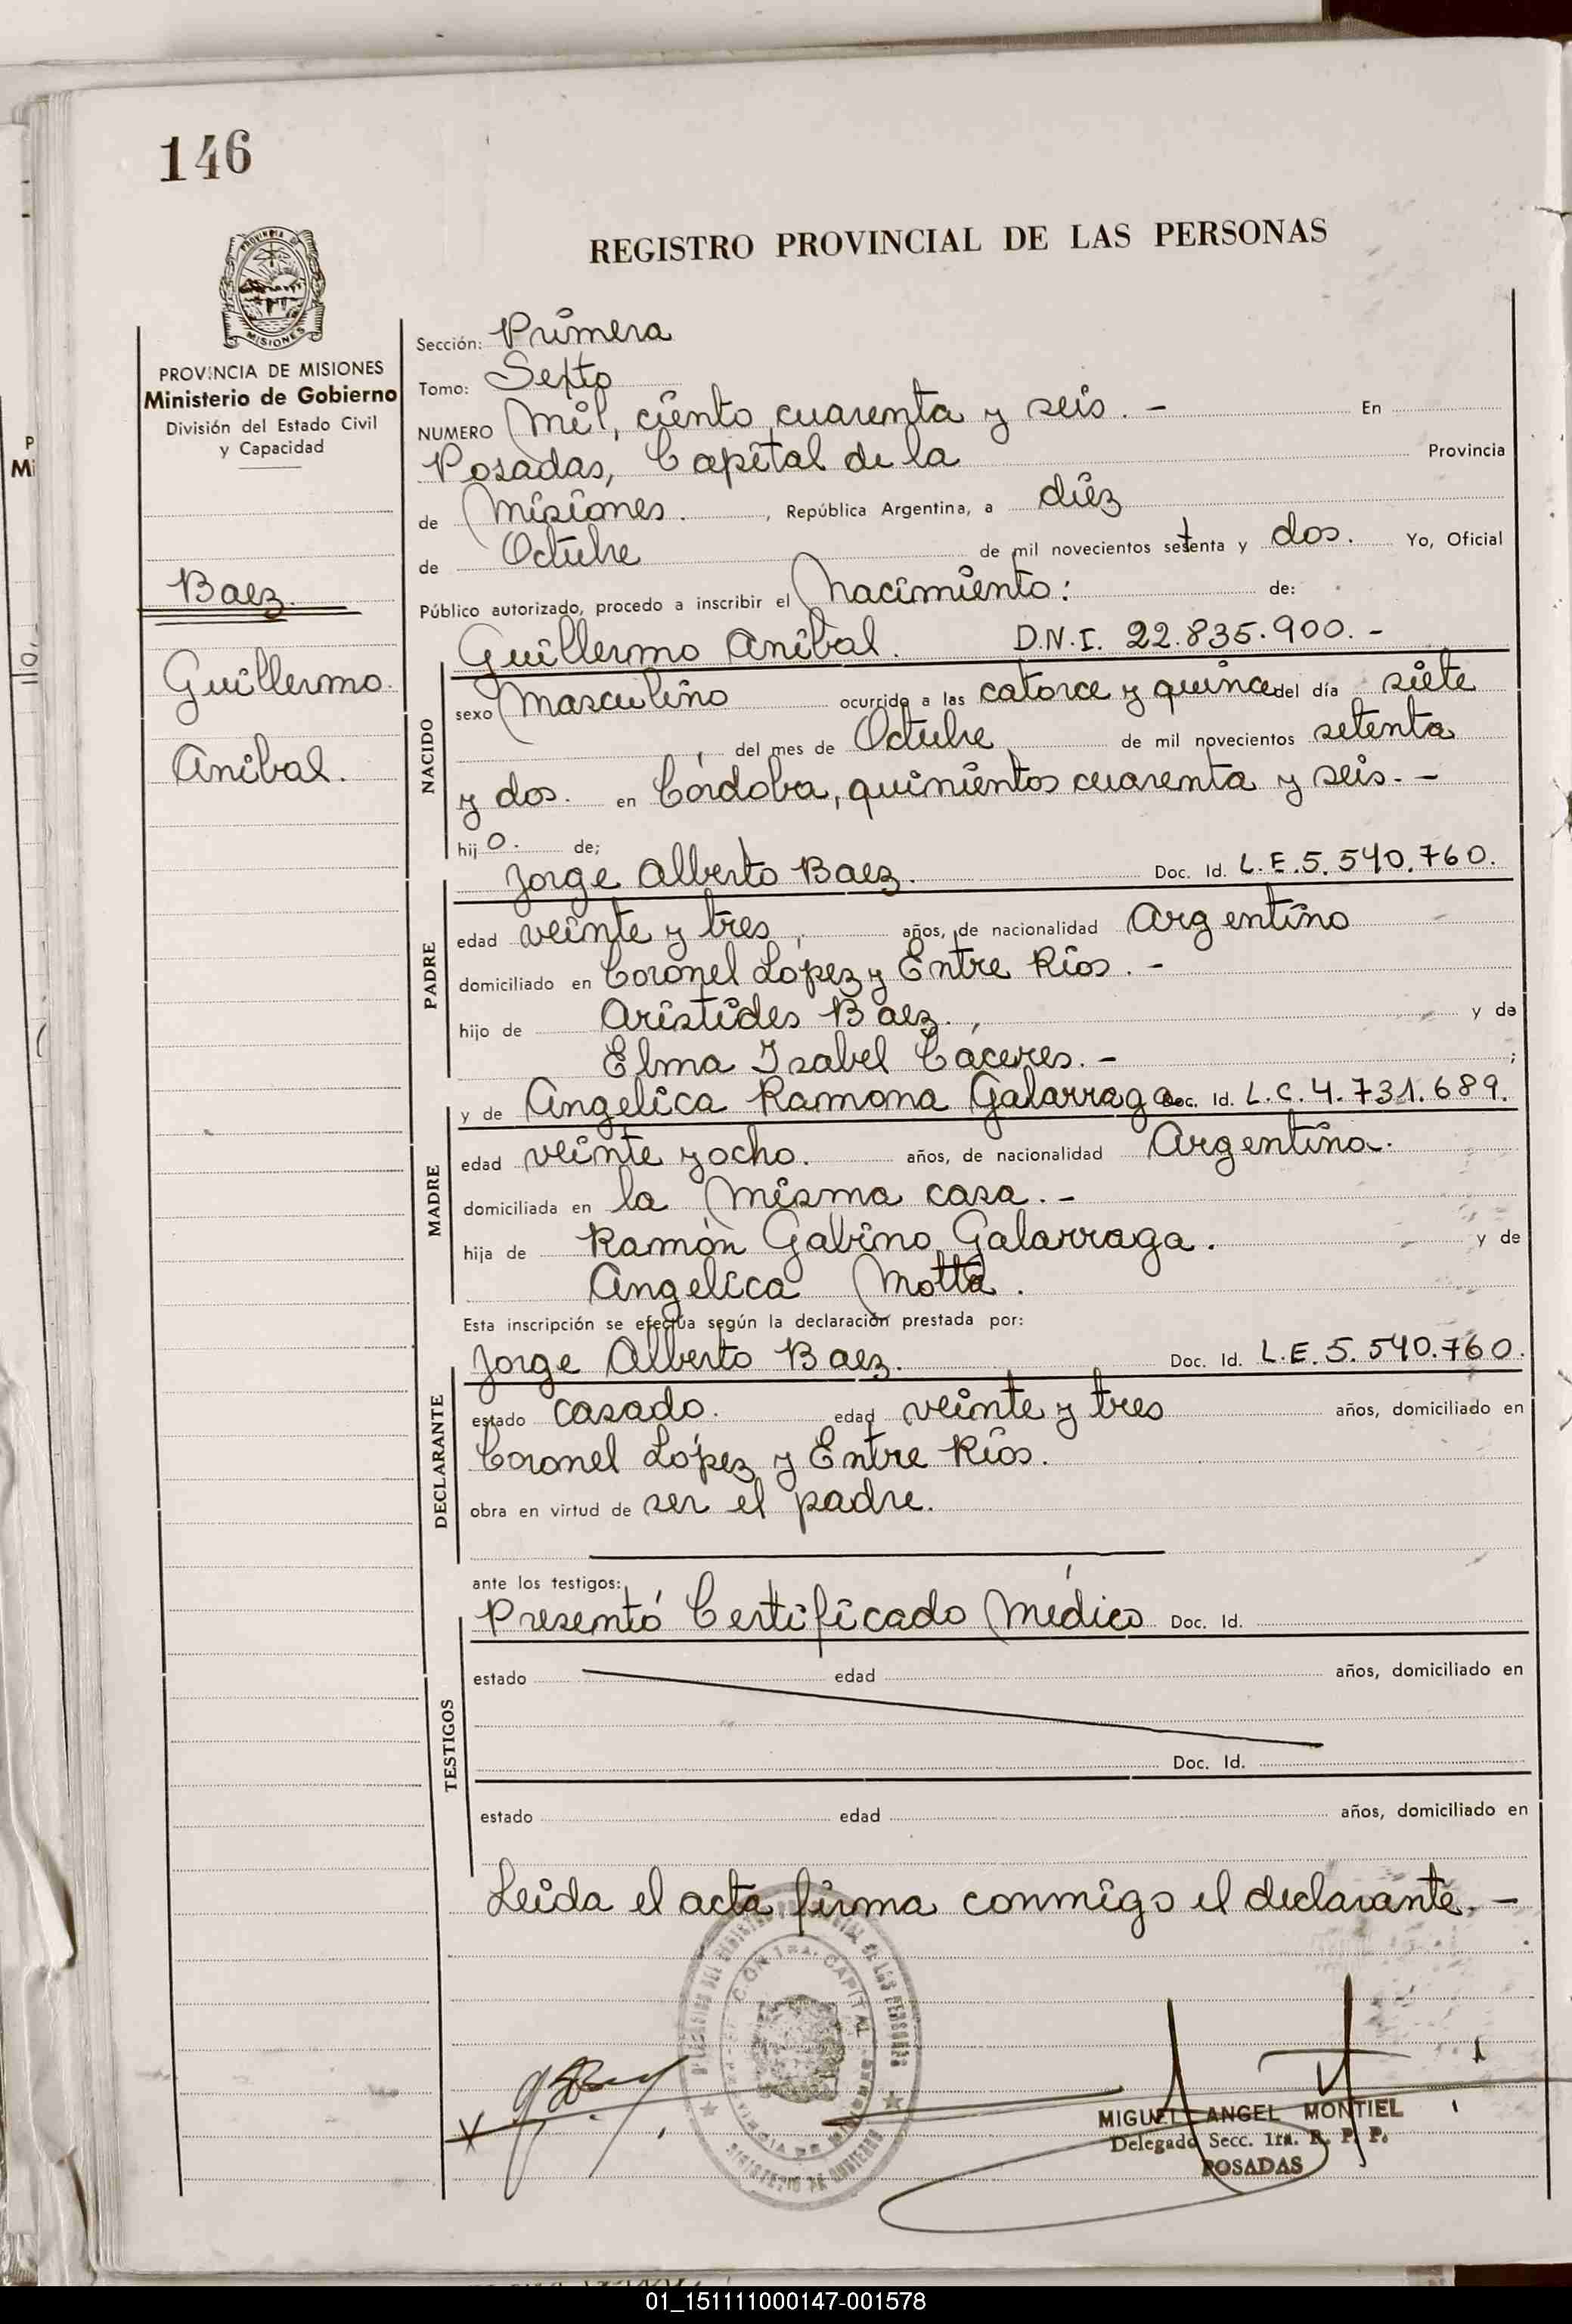 146
REGISTRO PROVINCIAL DE LAS PERSONAS
PROVINCIA DE MISIONES
MISIONES
PROVINCIA DE MISIONES
Ministerio de Gobierno
División del Estado Civil
y Capacidad
Baez.
Guillermo
Anibal.
Sección: Primera
Tomo: Sexto
NUMERO Mil, ciento cuarenta y seis. - En
Posadas, Capital de la Provincia
de Misiones. , República Argentina, a diez
de Octubre de mil novecientos setenta y dos. Yo, Oficial
Público autorizado, procedo a inscribir el Nacimiento: de:
Guillermo Anibal. D.N.I. 22.835.900.-
NACIDO
sexo Masculino ocurrido a las catorce y quince del día siete
, del mes de Octubre, de mil novecientos setenta
y dos. en Córdoba, quinientos cuarenta y seis. -
hijo. de;
Jorge Alberto Baez. Doc. Id. L.E. 5.540.760.
PADRE
edad veinte y tres, años, de nacionalidad Argentino
domiciliado en Coronel López y Entre Rios. -
hijo de Aristides Baez. y de
Elma Isabel Cáceres. - ;
y de Angelica Ramona Galarraga Doc. Id. L.C. 4.731.689.
MADRE
edad veinte y ocho. años, de nacionalidad Argentina.
domiciliada en la misma casa. -
hija de Ramón Gabino Galarraga. y de
Angelica Motta.
Esta inscripción se efectúa según la declaración prestada por:
Jorge Alberto Baez. Doc. Id. L.E. 5.540.760.
DECLARANTE
estado casado. edad veinte y tres años, domiciliado en
Coronel López y Entre Rios.
obra en virtud de ser el padre.
ante los testigos:
Presentó Certificado Médico Doc. Id.
TESTIGOS
estado edad años, domiciliado en
Doc. Id.
estado edad años, domiciliado en
Leida el acta, firma conmigo el declarante. -
CAPITAL
MIGUEL ANGEL MONTIEL
Delegado Secc. 1ra. R. P. P.
POSADAS
01_151111000147-001578